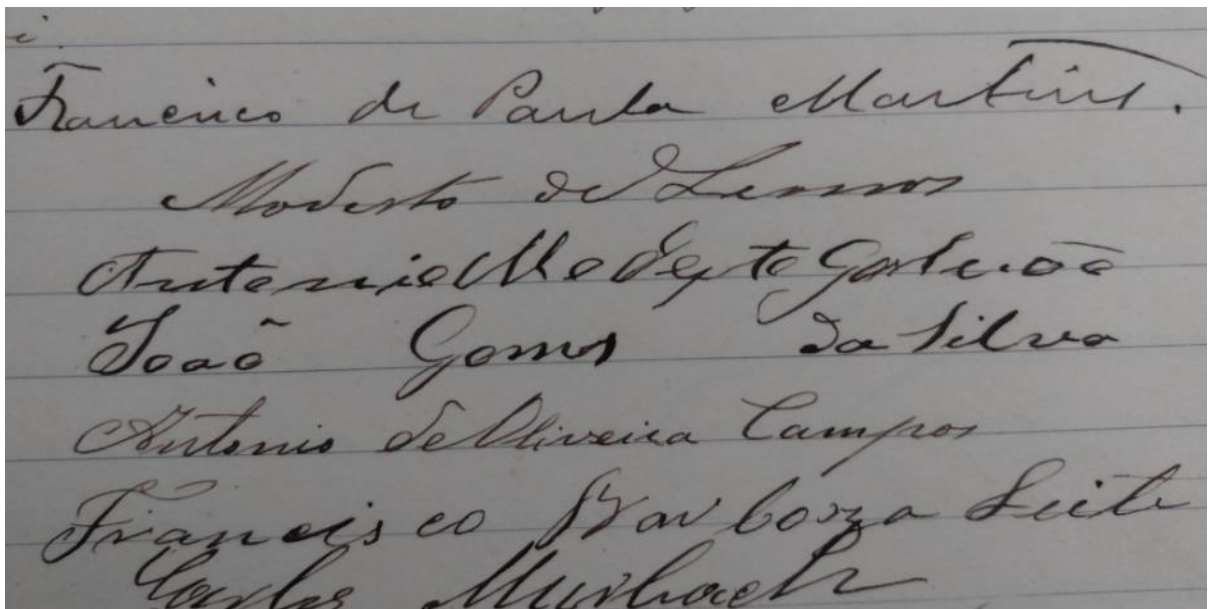 Francisco de Paula Martins.
Modesto de Lemos
Antonio Modesto Galvão
João Gomes da Silva
Antonio de Oliveira Campos
Francisco Barboza Leite
Carlos Murbach